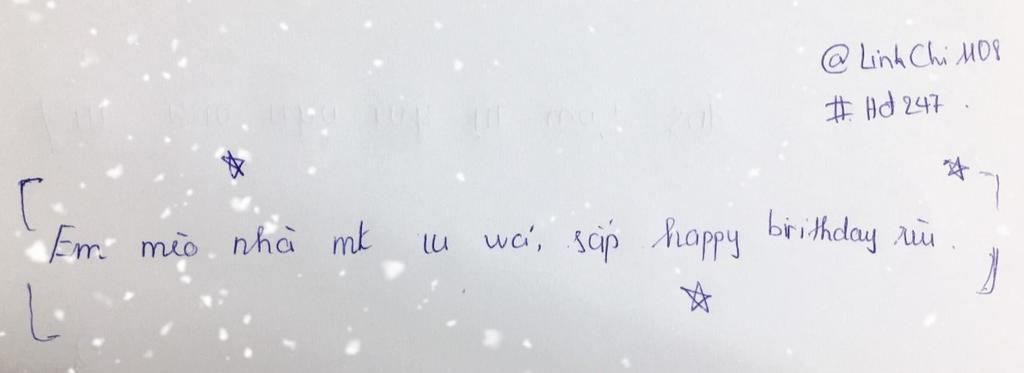 @ LinhChi1108
# Hd247.
Em mèo nhà mk iu wá, sắp happy birithday rùi.